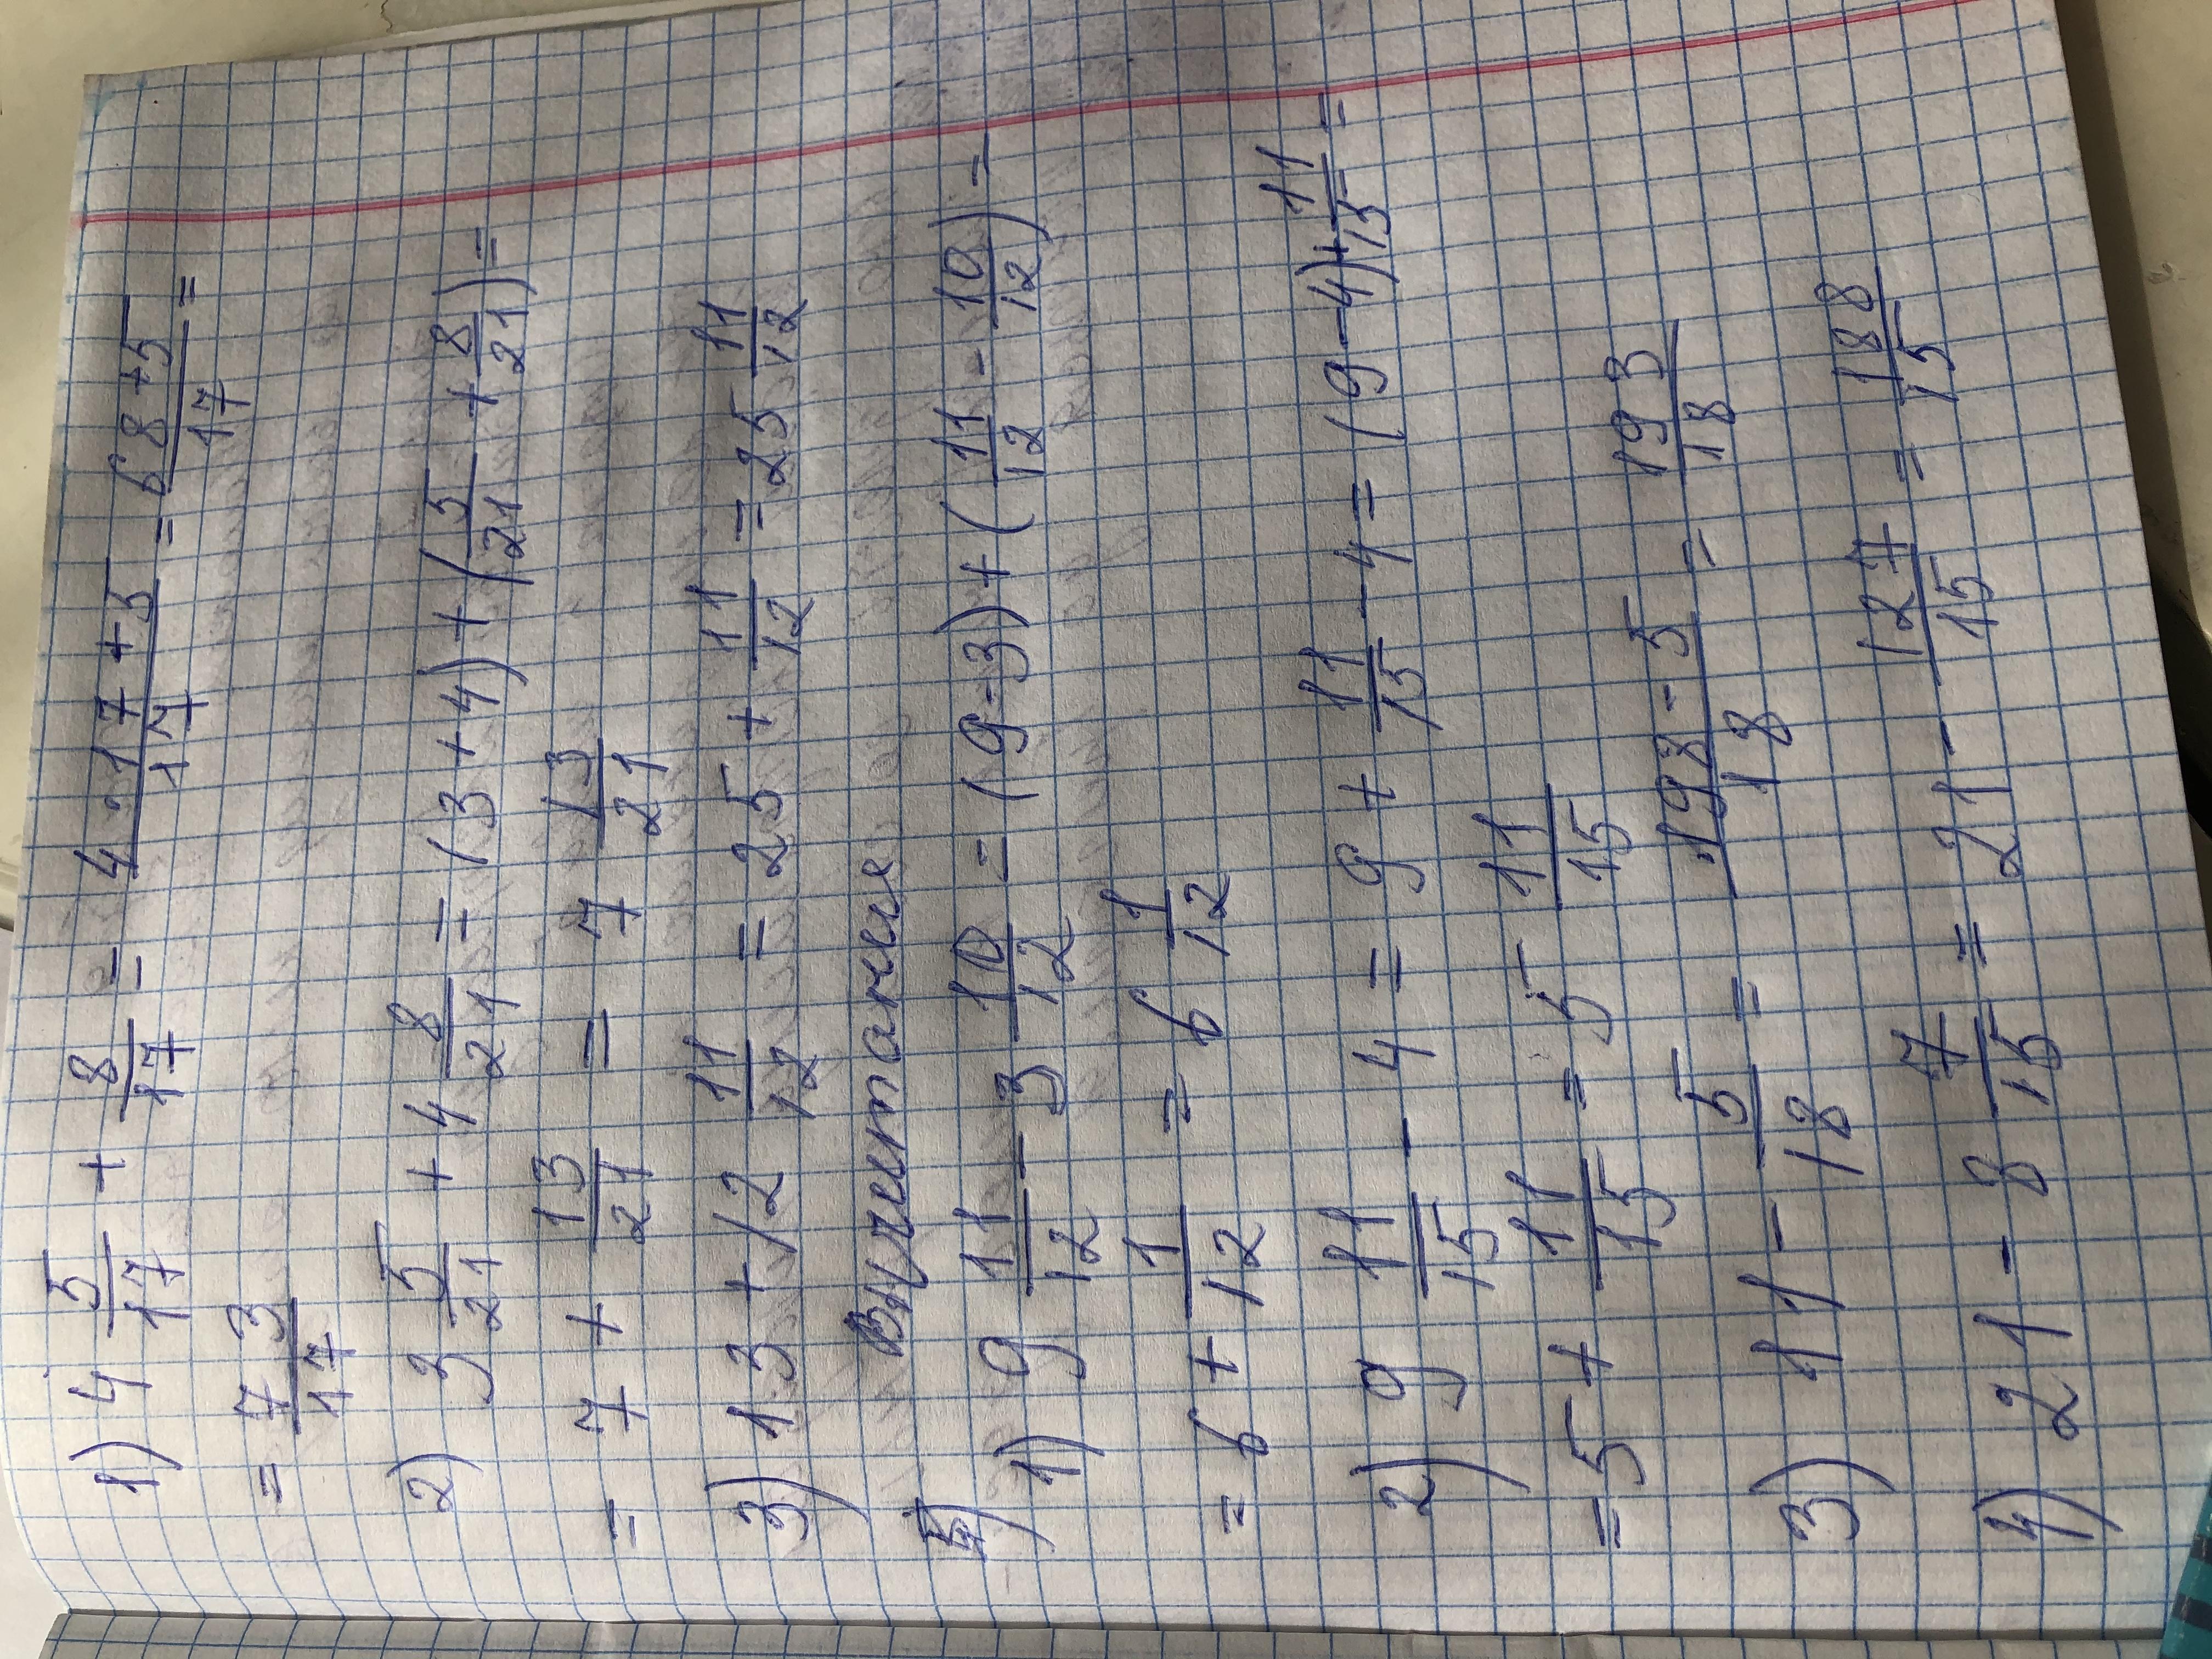 1) 4 5/17 + 8/17 = 4·17+5/17 = 68+5/17 =
= 73/17
2) 3 5/21 + 4 8/21 = (3+4)+(5/21 + 8/21) =
= 7 + 13/21 = 7 13/21
3) 13 + 12 11/12 = 25 + 11/12 = 25 11/12
Вычитание
1) 9 11/12 - 3 10/12 = (9-3)+(11/12 - 10/12) =
= 6 + 1/12 = 6 1/12
2) 9 11/15 - 4 = 9 + 11/15 - 4 = (9-4)+ 11/15 =
= 5 + 11/15 = 5 11/15
3) 11 - 5/18 = 198-5/18 = 193/18
4) 21 - 8 7/15 = 21 - 127/15 = 188/15